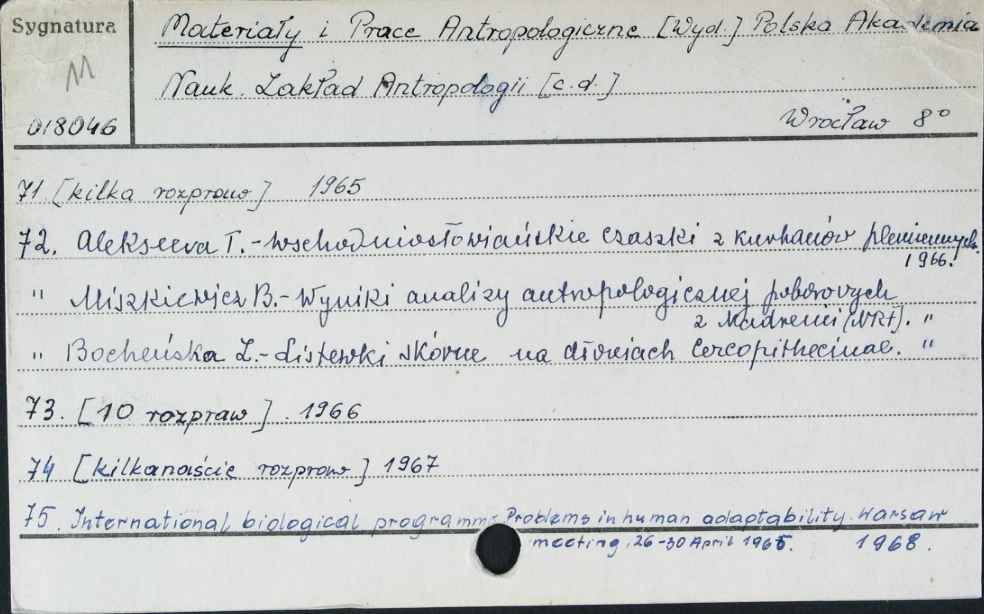 Sygnatura
M
018046
Materiały i Prace Antropologiczne [Wyd.] Polska Akademia
Nauk. Zakład Antropologii [c.d.]
Wrocław 8°
71. [kilka rozpraw] 1965
72. Alekseeva T.-Wschodniosłowiańskie czaszki z kurhanów plemiennych.
1966.
" Miszkiewicz B.-Wyniki analizy antropologicznej poborowych
z (NRF). "
" Bocheńska Z.-Listewki skórne na dłoniach Cercopithecinae. "
73. [10 rozpraw]. 1966
74 [kilkanaście rozpraw] 1967
75. International biological programme Problems in human adaptability. Warsaw
meeting, 26-30 April 1965. 1968.